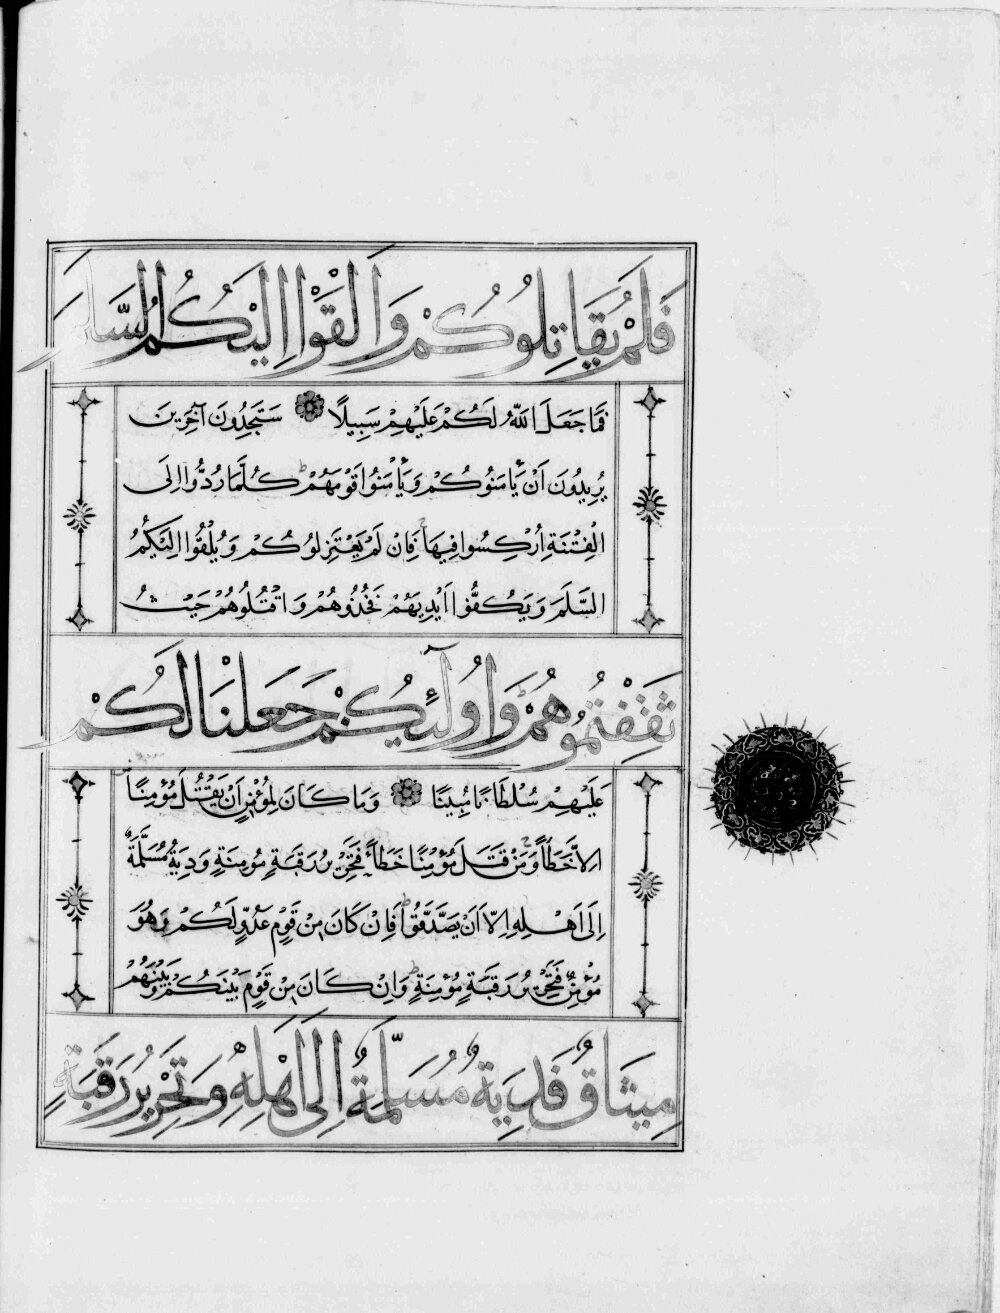 فَلَمْ يُقَاتِلُوكُمْ وَاَلْقَوْا اِلَيْكُمُ السَّلَمَ
فَمَا جَعَلَ اللّٰهُ لَكُمْ عَلَيْهِمْ سَبِيلًا سَتَجِدُونَ آخَرِينَ
يُرِيدُونَ اَنْ يَأْمَنُوكُمْ وَيَأْمَنُوا قَوْمَهُمْ كُلَّمَا رُدُّوا اِلَى
الْفِتْنَةِ اُرْكِسُوا فِيهَا فَاِنْ لَمْ يَعْتَزِلُوكُمْ وَيُلْقُوا اِلَيْكُمُ
السَّلَمَ وَيَكُفُّوا اَيْدِيَهُمْ فَخُذُوهُمْ وَاقْتُلُوهُمْ حَيْثُ
ثَقِفْتُمُوهُمْ وَاُولٰئِكُمْ جَعَلْنَا لَكُمْ
عَلَيْهِمْ سُلْطَانًا مُبِينًا وَمَا كَانَ لِمُؤْمِنٍ اَنْ يَقْتُلَ مُؤْمِنًا
اِلَّا خَطَأً وَمَنْ قَتَلَ مُؤْمِنًا خَطَأً فَتَحْرِيرُ رَقَبَةٍ مُؤْمِنَةٍ وَدِيَةٌ مُسَلَّمَةٌ
اِلَى اَهْلِهِ اِلَّا اَنْ يَصَّدَّقُوا فَاِنْ كَانَ مِنْ قَوْمٍ عَدُوٍّ لَكُمْ وَهُوَ
مُؤْمِنٌ فَتَحْرِيرُ رَقَبَةٍ مُؤْمِنَةٍ وَاِنْ كَانَ مِنْ قَوْمٍ بَيْنَكُمْ وَبَيْنَهُمْ
مِيثَاقٌ فَدِيَةٌ مُسَلَّمَةٌ اِلَى اَهْلِهِ وَتَحْرِيرُ رَقَبَةٍ